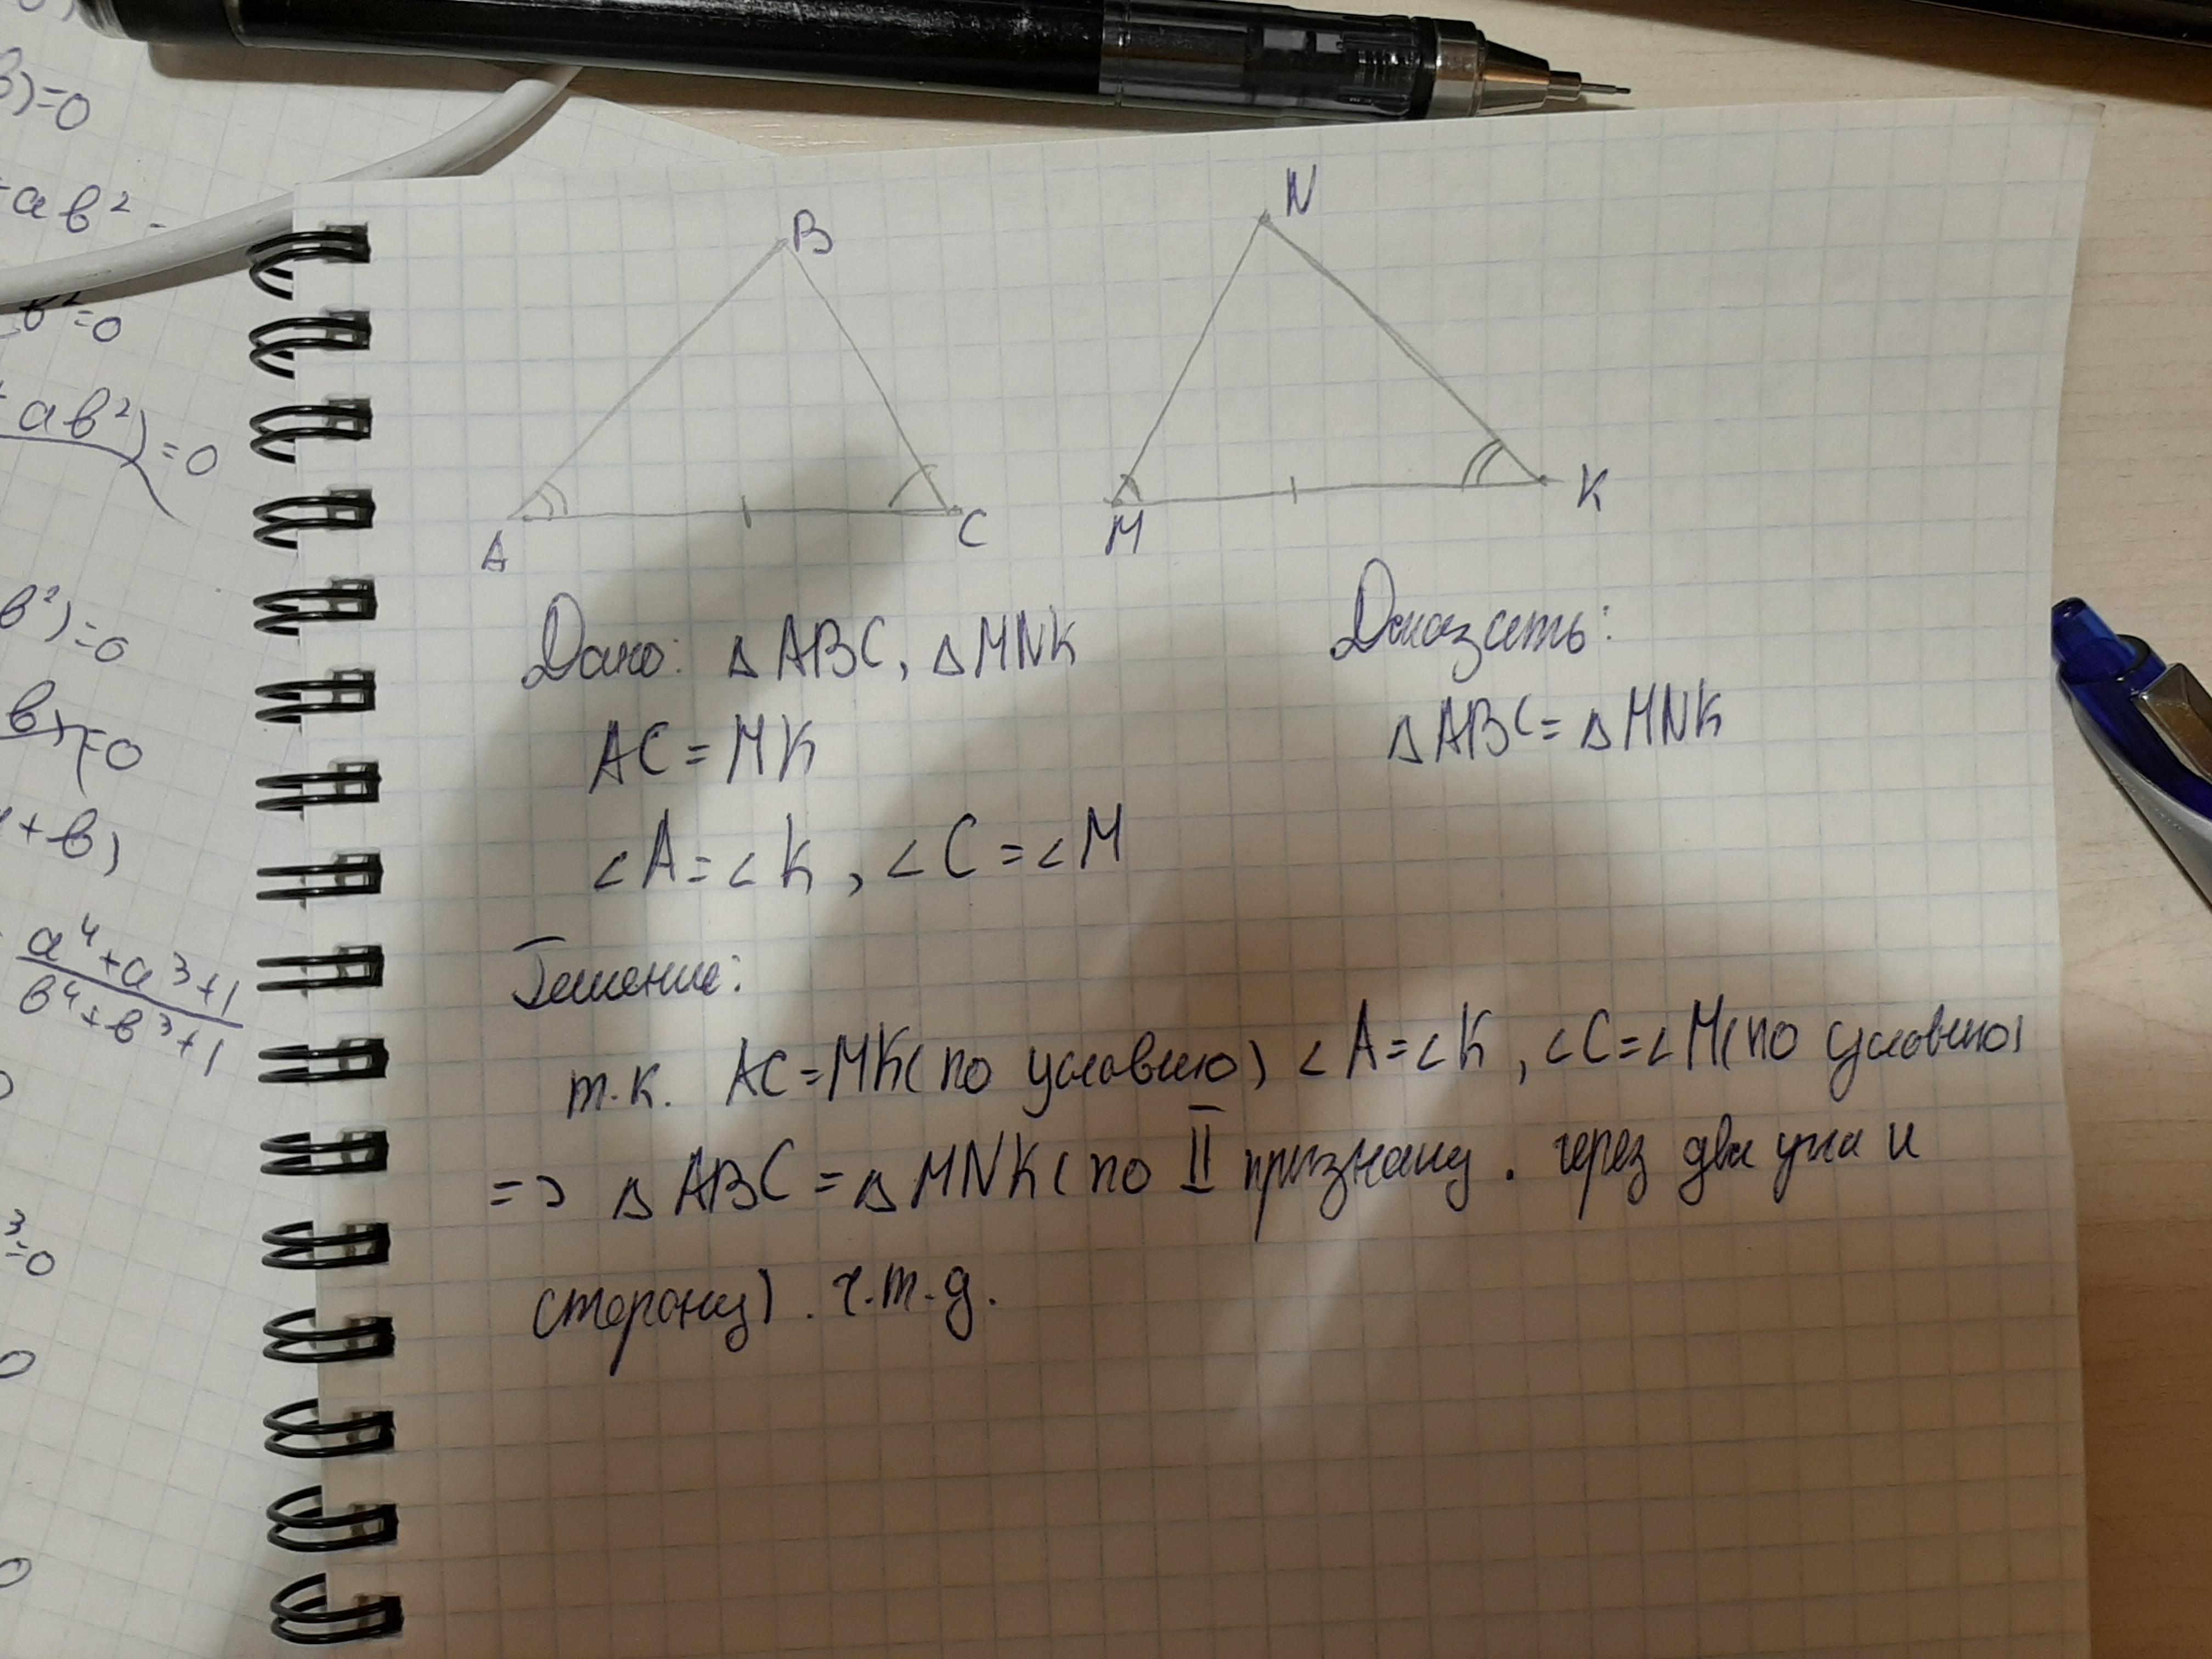 в)=0
+ab² -
b²=0
+ab²)=0
b²)=0
b)=0
+b)
a⁴+a³+1
b⁴+b³+1
³=0
B
N
A
C
M
K
Дано: △ABC, △MNK
Доказать:
AC=MK
△ABC=△MNK
∠A=∠K, ∠C=∠M
Решение:
т.к. AC=MK(по условию) ∠A=∠K, ∠C=∠M(по условию)
=> △ABC=△MNK(по II признаку. через два угла и
сторону). ч.т.д.